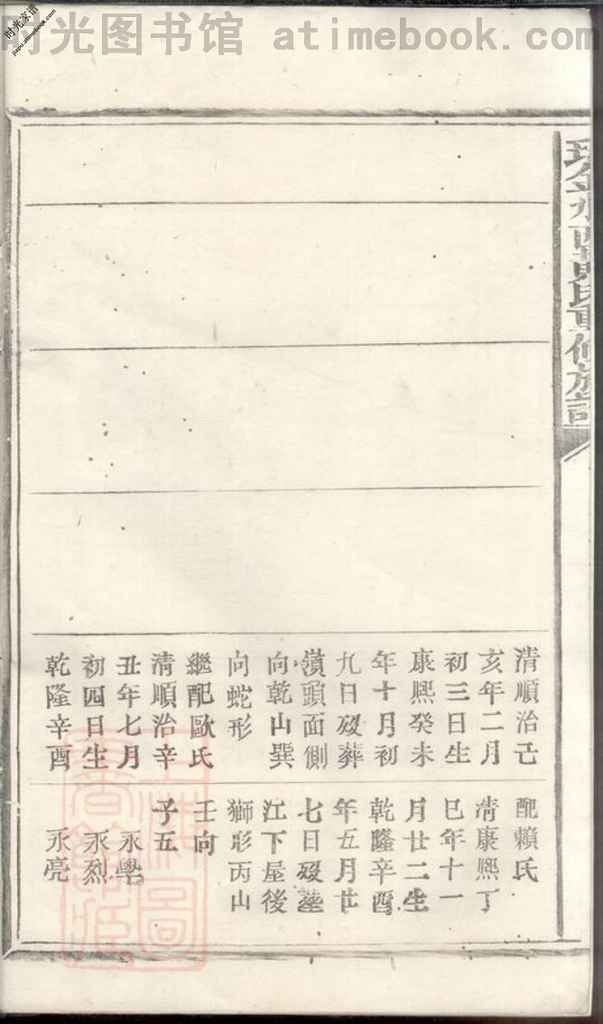 时光图书馆 atimebook.com
时光家谱
清順治己
亥年二月
初三日生
康熙癸未
年十月初
九日歿葬
嶺頭面側
向乾山巽
向蛇形
繼配歐氏
清順治辛
丑年七月
初四日生
乾隆辛酉
配賴氏
清康熙丁
巳年十一
月廿二生
乾隆辛酉
年五月廿
七日歿塟
江下屋後
獅形丙山
壬向
子五
永學
永烈
永亮